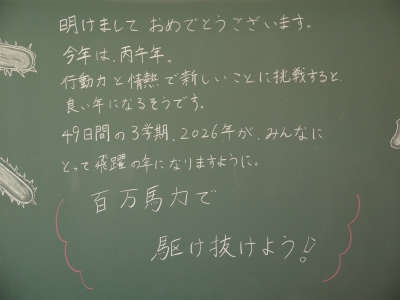 明けまして おめでとうございます。
今年は、丙午年。
行動力と情熱で新しいことに挑戦すると、
良い年になるそうです。
49日間の3学期、2026年が、みんなに
とって飛躍の年になりますように。
百万馬力で
駆け抜けよう!